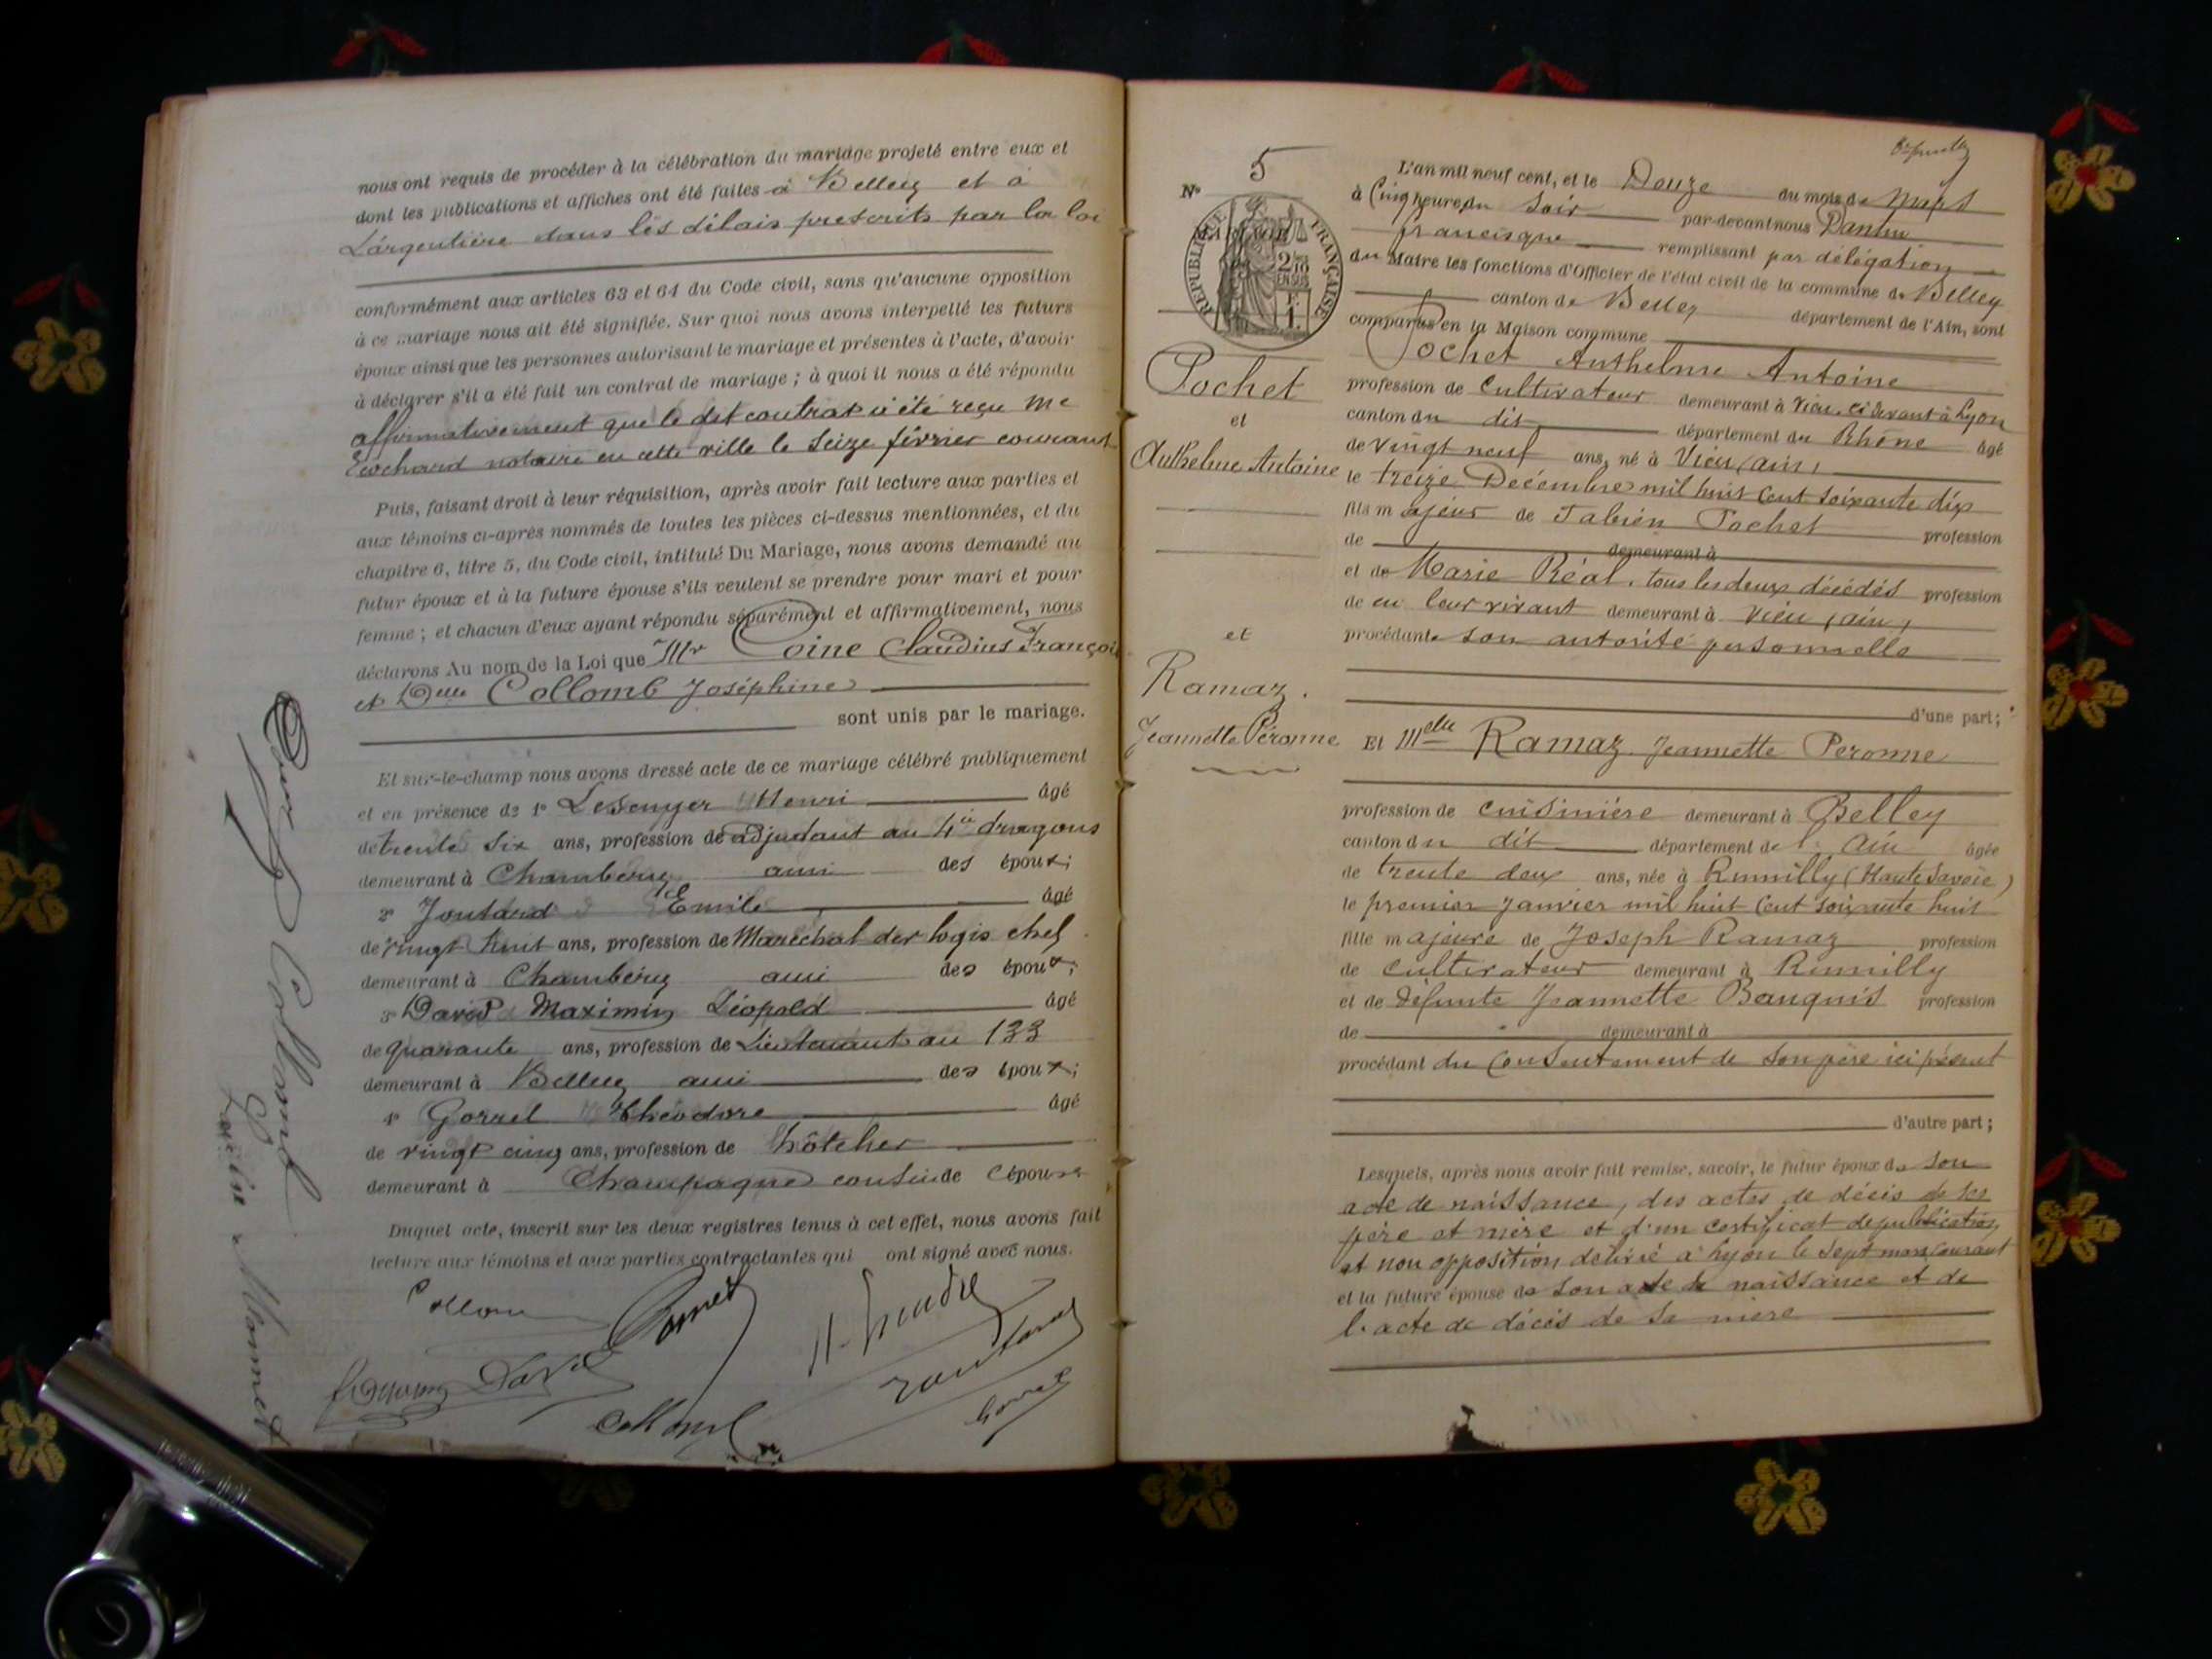 nous ont requis de procéder à la célébration du mariage projeté entre eux et
dont les publications et affiches ont été faites à Belley et à
Largentière dans les délais prescrits par la loi
conformément aux articles 63 et 64 du Code civil, sans qu'aucune opposition
à ce mariage nous ait été signifiée. Sur quoi nous avons interpellé les futurs
époux ainsi que les personnes autorisant le mariage et présentes à l'acte, d'avoir
à déclarer s'il a été fait un contrat de mariage ; à quoi il nous a été répondu
affirmativement que le dit contrat a été reçu Me
notaire en cette ville le seize février courant
Puis, faisant droit à leur réquisition, après avoir fait lecture aux parties et
aux témoins ci-après nommés de toutes les pièces ci-dessus mentionnées, et du
chapitre 6, titre 5, du Code civil, intitulé Du Mariage, nous avons demandé au
futur époux et à la future épouse s'ils veulent se prendre pour mari et pour
femme ; et chacun d'eux ayant répondu séparément et affirmativement, nous
déclarons Au nom de la Loi que Mr Coine Claudius François
et Delle Collomb Joséphine
sont unis par le mariage.
Et sur-le-champ nous avons dressé acte de ce mariage célébré publiquement
et en présence de 1° Lesenyer Henri âgé
de trente six ans, profession de adjudant au 4e dragons
demeurant à Chambéry ami des époux ;
2° Joutard Emile âgé
de vingt huit ans, profession de Maréchal der logis chef
demeurant à Chambéry ami des époux ;
3° David Maximin Léopold âgé
de quarante ans, profession de Lieutenant au 133
demeurant à Belley ami des époux ;
4° Gorrel Théodore âgé
de vingt cinq ans, profession de hôtelier
demeurant à Champagne cousin de l'épouse
Duquel acte, inscrit sur les deux registres tenus à cet effet, nous avons fait
lecture aux témoins et aux parties contractantes qui ont signé avec nous.
David
Collomb
Joutard
Gorrel
Collomb
N° 5
RÉPUBLIQUE FRANÇAISE
2/10 EN SUS
1 F.
Pochet
et
Anthelme Antoine
et
Ramaz.
Jeannette Péronne
L'an mil neuf cent, et le Douze du mois de Mars
à Cinq heures du soir par-devant nous Dantin
francisque remplissant par délégation
du Maire les fonctions d'Officier de l'état civil de la commune de Belley
canton de Belley département de l'Ain, sont
comparus en la Maison commune
Pochet Anthelme Antoine
profession de Cultivateur demeurant à Vieu, ci devant à Lyon
canton du dit département du Rhône âgé
de vingt neuf ans, né à Vieu (ain)
le treize Décembre mil huit cent soixante dix
fils majeur de Fabien Pochet profession
de demeurant à
et de Marie Réal, tous les deux décédés profession
de en leur vivant demeurant à Vieu (ain)
procédant son autorité personnelle
d'une part ;
Et Melle Ramaz Jeannette Peronne
profession de cuisinière demeurant à Belley
canton du dit département de l'Ain âgée
de trente deux ans, née à Rumilly (Haute Savoie)
le premier Janvier mil huit cent soixante huit
fille majeure de Joseph Ramaz profession
de cultivateur demeurant à Rumilly
et de défunte Jeannette Bouquis profession
de demeurant à
procédant du consentement de son père ici présent
d'autre part ;
Lesquels, après nous avoir fait remise, savoir, le futur époux de son
acte de naissance, des actes de décès de ses
père et mère et d'un certificat de publication
et non opposition délivré à Lyon le sept mars courant
et la future épouse de son acte de naissance et de
l'acte de décès de sa mère